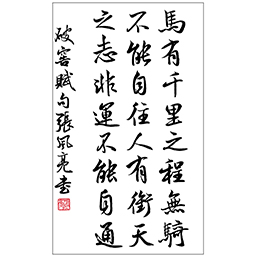 馬有千里之程無騎
不能自往人有衝天
之志非運不能自通
破窯賦句張風亮書